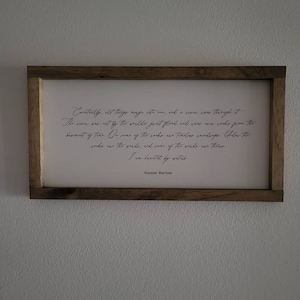 Eventually, all things merge into one, and a river runs through it.
The river was cut by the world's great flood and runs over rocks from the
basement of time. On some of the rocks are timeless raindrops. Under the
rocks are the words, and some of the words are theirs.
I am haunted by waters.
Norman Maclean